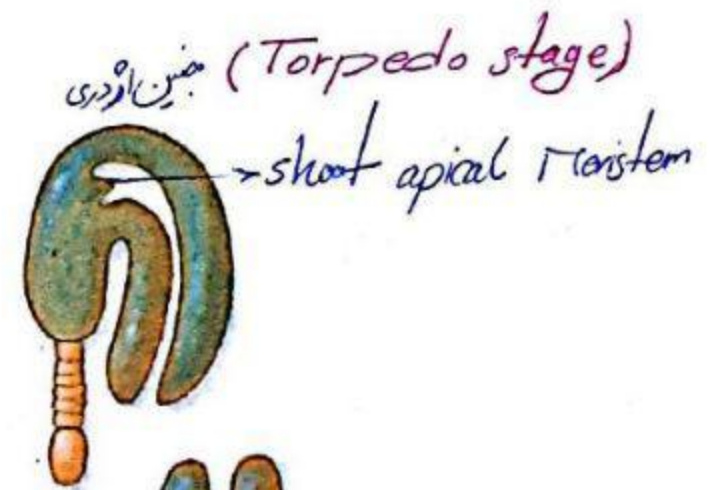 جنین اژدری (Torpedo stage)
shoot apical Meristem